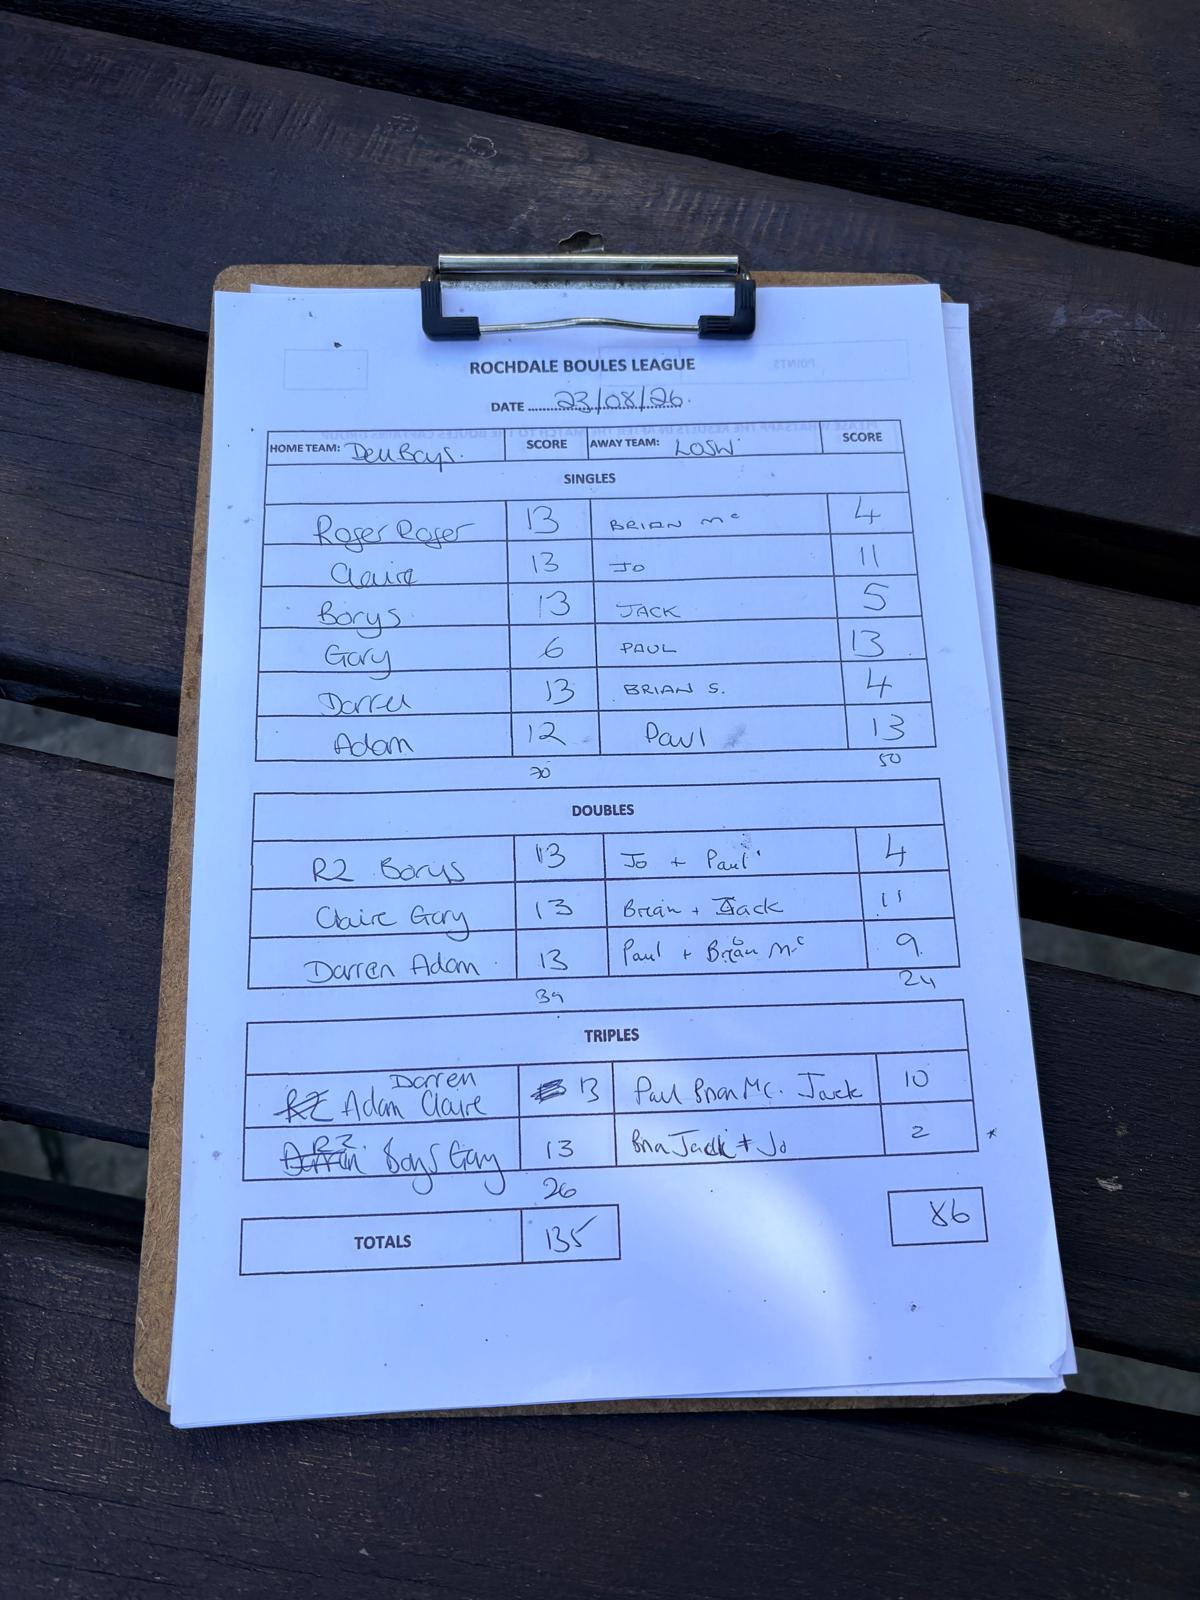 ROCHDALE BOULES LEAGUE
DATE 23/08/26.
HOME TEAM: Dell Boys. SCORE AWAY TEAM: LOSW SCORE
SINGLES
Roger Roger 13 BRIAN Mc 4
Claire 13 JO 11
Borys 13 JACK 5
Gary 6 PAUL 13
Darren 13 BRIAN S. 4
Adam 12 Paul 13
70 50
DOUBLES
R2 Borys 13 Jo + Paul 4
Claire Gary 13 Brian + Jack 11
Darren Adam 13 Paul + Brian Mc 9
39 24
TRIPLES
Darren
Adam Claire 13 Paul Brian Mc. Jack 10
R2. Boys Gary 13 Bria Jack + Jo 2 *
26
TOTALS 135 86